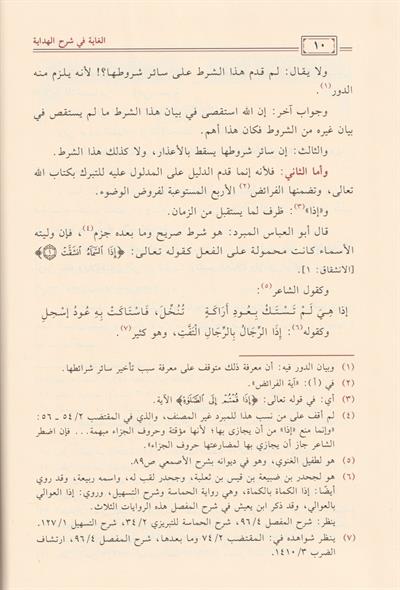 ١٠
الغاية في شرح الهداية
ولا يقال: لم قدم هذا الشرط على سائر شروطها؟! لأنه يلزم منه
الدور(١).
وجواب آخر: إن الله استقصى في بيان هذا الشرط ما لم يستقص في
بيان غيره من الشروط فكان هذا أهم.
والثالث: إن سائر شروطها يسقط بالأعذار، ولا كذلك هذا الشرط.
وأما الثاني: فلأنه إنما قدم الدليل على المدلول عليه للتبرك بكتاب الله
تعالى، وتضمنها الفرائض(٢) الأربع المستوعبة لفروض الوضوء.
و«إذا»(٣): ظرف لما يستقبل من الزمان.
قال أبو العباس المبرد: هو شرط صريح وما بعده جزم(٤)، فإن وليته
الأسماء كانت محمولة على الفعل كقوله تعالى: ﴿إِذَا ٱلسَّمَآءُ ٱنشَقَّتْ ۝١﴾
[الانشقاق: ١].
وكقول الشاعر(٥):
إذَا هِيَ لَمْ تَسْتَكْ بِعودِ أَرَاكَةٍ تُنُخِّلَ، فَاسْتَاكَتْ بِهِ عُودُ إِسْحِلِ
وكقوله(٦): إِذَا الرِّجَالُ بِالرِّجَالِ الْتَفَّتِ، وهو كثير(٧).
(١) وبيان الدور فيه: أن معرفة ذلك متوقف على معرفة سبب تأخير سائر شرائطها.
(٢) في (أ): «آية الفرائض».
(٣) أي: في قوله تعالى: ﴿إِذَا قُمْتُمْ إِلَى ٱلصَّلَوٰةِ﴾ الآية.
(٤) لم أقف على من نسب هذا للمبرد غير المصنف، والذي في المقتضب ٥٤/٢ - ٥٦:
«وإنما منع «إذا» من أن يجازى بها؛ لأنها مؤقتة وحروف الجزاء مبهمة... فإن اضطر
الشاعر جاز أن يجازي بها لمضارعتها حروف الجزاء».
(٥) هو لطفيل الغنوي، وهو في ديوانه بشرح الأصمعي ص٨٩.
(٦) هو لجحدر بن ضبيعة بن قيس بن ثعلبة، وجحدر لقب له، واسمه ربيعة، وقد روي
أيضًا: إذا الكماة بالكماة، وهي رواية الحماسة وشرح التسهيل، وروي: إذا العوالي
بالعوالي، وقد ذكر ابن يعيش في شرح المفصل هذه الروايات الثلاث.
ينظر: شرح المفصل ٩٦/٤، شرح الحماسة للتبريزي ٣٤/٢، شرح التسهيل ١٢٧/١.
(٧) ينظر شواهده في: المقتضب ٧٤/٢ وما بعدها، شرح المفصل ٩٦/٤، ارتشاف
الضرب ١٤١٠/٣.